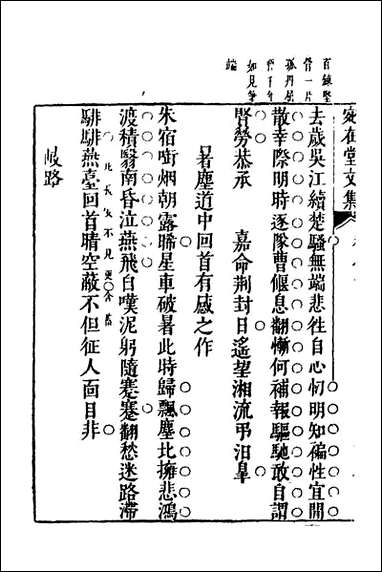 百鍊堅
骨一片
孤丹屈
伸千年
如見筆
端
宛在堂文集
去歲吳江續楚騷無端悲徃自心忉明知褊性宜閒
散幸際明時逐隊曹偃息翻慚何補報驅馳敢自謂
賢勞恭承　嘉命荆封日遥望湘流弔汨臯
暑塵道中回首有感之作
朱宿啣烟朝露晞星車破暑此時歸飄塵比擁悲鴻
渡積翳南昏泣燕飛自嘆泥躬隨蹇蹇翻愁迷路滯
騑騑燕臺回首晴空蔽不但征人面目非
此長安不見更含蓄
岐路